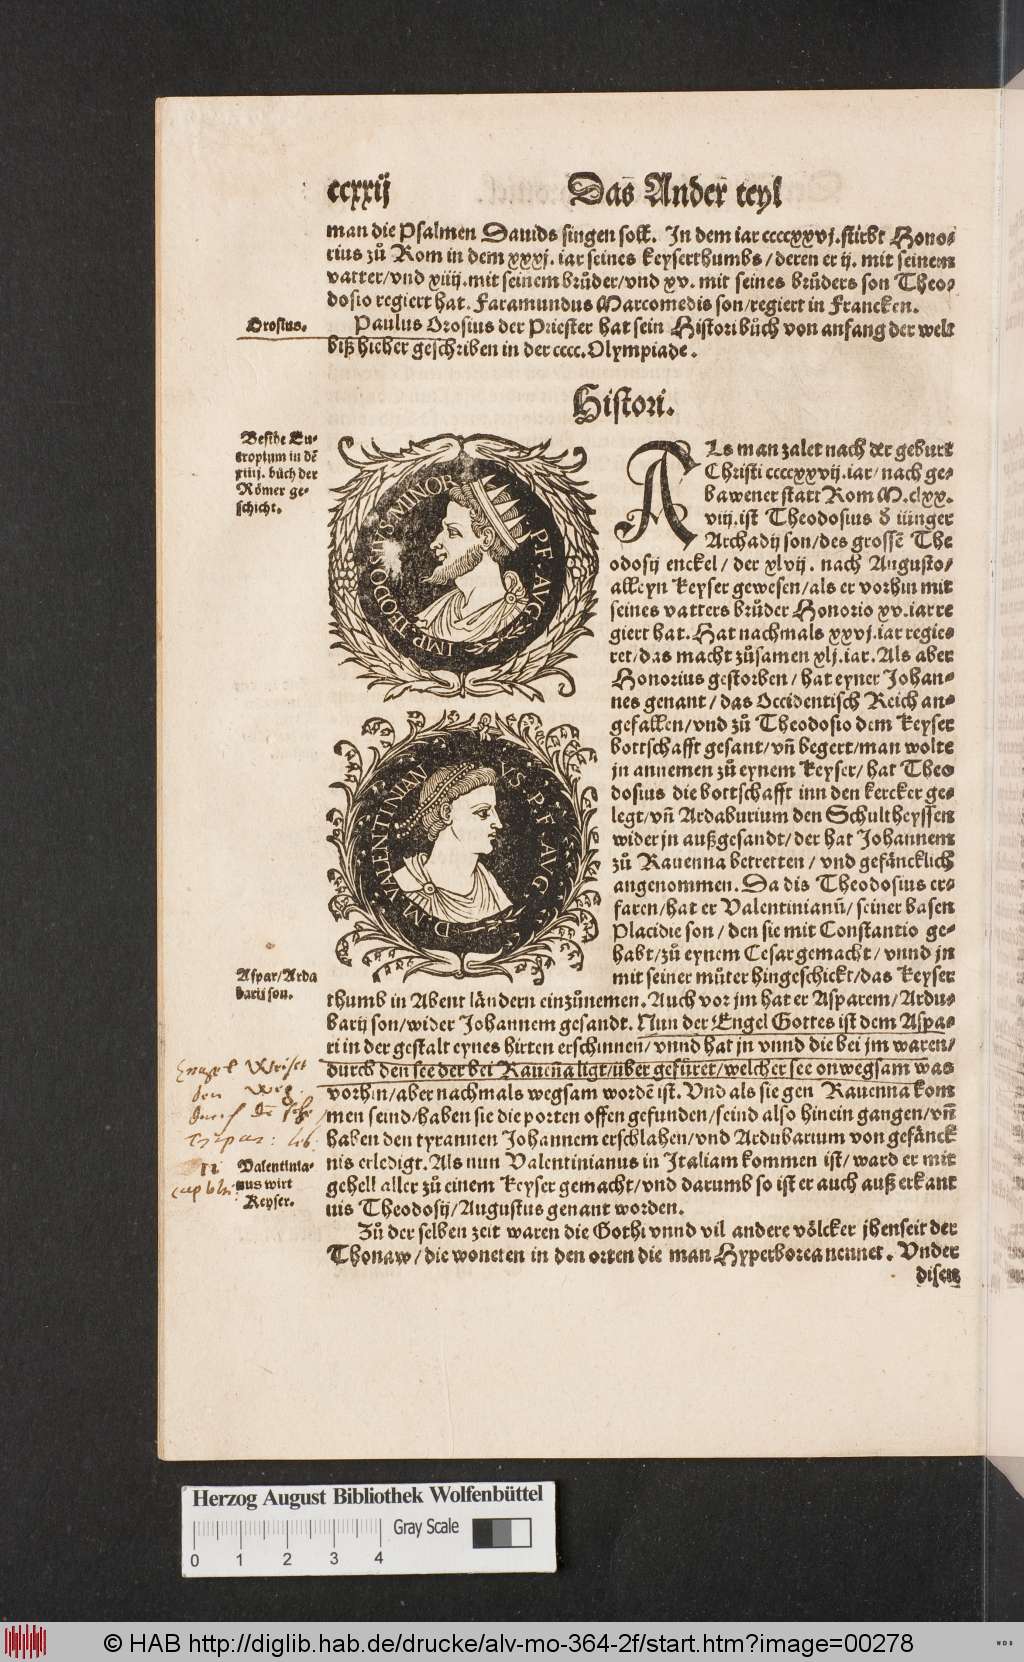 ccxxij Das Ander teyl
man die Psalmen Dauids singen soll. In dem iar ccccxxvj. stirbt Hono-
rius zů Rom in dem xxxj. iar seines keyserthumbs / deren er ij. mit seinem
vatter/vnd xiiij. mit seinem brůder/vnd xv. mit seines brůders son Theo-
dosio regiert hat. Faramundus Marcomedis son/regiert in Francken.
Orosius.
Paulus Orosius der Priester hat sein Histori bůch von anfang der welt
biß hieher geschriben in der cccc. Olympiade.
Histori.
Besihe Eu-
tropium in dē
xiiij. bůch der
Römer ge-
schicht.
IMP. TEODOSIVS MINOR P. F. AVG.
D. M. VALENTINIANVS P. F. AVG.
ALs man zalet nach der geburt
Christi ccccxxvij. iar/ nach ge-
bawener statt Rom M. clxx.
viij. ist Theodosius d̄ iünger
Archadij son/des grossē The
odosij enckel / der xlvij. nach Augusto/
alleyn keyser gewesen/als er vorhin mit
seines vatters brůder Honorio xv. iar re
giert hat. Hat nachmals xxvj. iar regie-
ret/das macht zůsamen xlj. iar. Als aber
Honorius gestorben / hat eyner Johan-
nes genant / das Occidentisch Reich an-
gefallen/vnd zů Theodosio dem keyser
bottschafft gesant/vn̄ begert/man wolte
jn annemen zů eynem keyser/ hat Theo
dosius die bottschafft inn den kercker ge-
legt/vn̄ Ardaburium den Schultheyssen
wider jn außgesandt/der hat Johannem
zů Rauenna betretten / vnd gefäncklich
angenommen. Da dis Theodosius er-
faren/hat er Valentinianū/ seiner basen
Placidie son / den sie mit Constantio ge-
habt/zů eynem Cesar gemacht/ vnnd jn
mit seiner můter hingeschickt/das keyser
Aspar/Arda
barij son.
thumb in Abent ländern einzůnemen. Auch vor jm hat er Asparem/Ardu-
barij son/wider Johannem gesandt. Nun der Engel Gottes ist dem Aspa-
ri in der gestalt eynes hirten erschinnen/ vnnd hat jn vnnd die bei jm waren/
durch den see der bei Rauena ligt/über gefüret/welcher see onwegsam was
vorhin/aber nachmals wegsam wordē ist. Vnd als sie gen Rauenna kom
men seind/haben sie die porten offen gefunden/seind also hinein gangen/vn̄
haben den tyrannen Johannem erschlahen/vnd Ardubarium von gefänck
nis erledigt. Als nun Valentinianus in Italiam kommen ist/ ward er mit
gehell aller zů einem keyser gemacht/vnd darumb so ist er auch auß erkant
nis Theodosij/Augustus genant worden.
Weg
Valentinia-
nus wirt
Keyser.
Zů der selben zeit waren die Gothi vnnd vil andere völcker jhenseit der
Thonaw/die woneten in den orten die man Hyperborea nennet. Vnder
disen
Herzog August Bibliothek Wolfenbüttel
Gray Scale
0 1 2 3 4
© HAB http://diglib.hab.de/drucke/alv-mo-364-2f/start.htm?image=00278